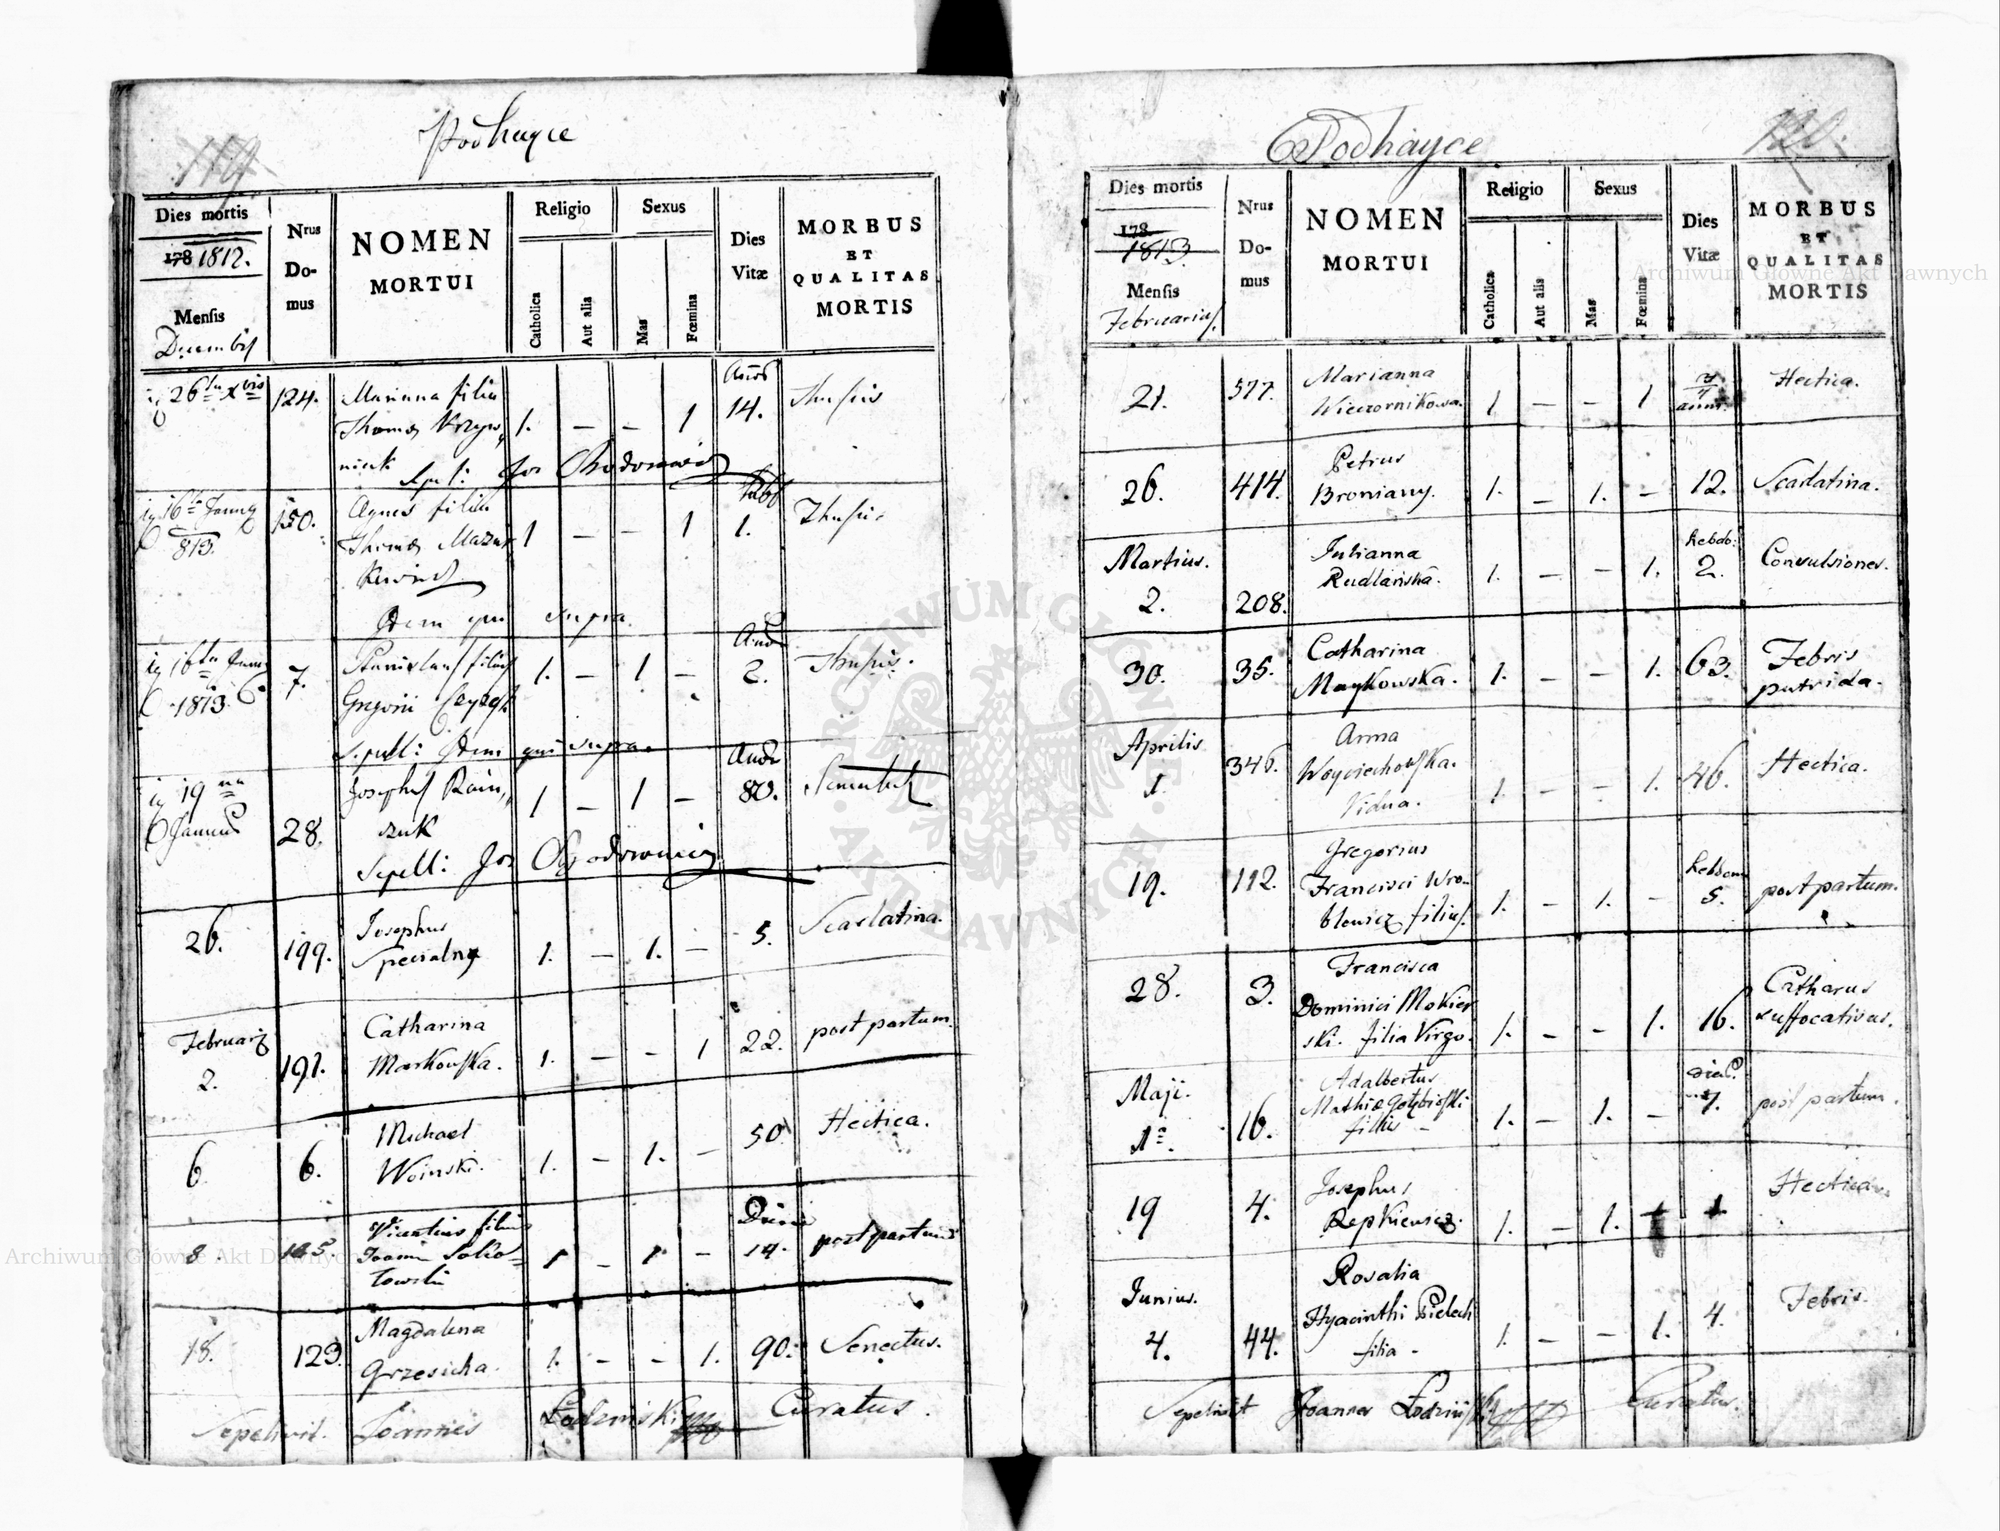 Podhayce
119
Dies mortis
178 1812.
Mensis
Decembris
Nrus Domus
NOMEN MORTUI
Religio
Catholica
Aut alia
Sexus
Mas
Fœmina
Dies Vitæ
MORBUS ET QUALITAS MORTIS
26 124. Marianna filia 1. — — 1 14.
Thomæ
Sepel:
16 Janua 813. 150. Agnes filia 1 — — 1 1.
Thomæ Mazur
kiewicz
Idem qui supra
16 Janu 1813 7. Stanislaus filius 1. — 1 — 2.
Gregorii
Sepell: Idem qui supra.
19 28. Josephus 1 — 1 — 80.
Sepell: Jos
26. 199. Josephus 1. — 1. — 5. Scarlatina.
Specialny
Februarij 2. 191. Catharina 1. — — 1 22. post partum.
Markowska.
6 6. Michael 1. — 1. — 50 Hectica.
Woinski.
8 Vicentius filius 1 — 1 — 14. post partum
Joannis
18. 129. Magdalena 1. — — 1. 90. Senectus.
Grzesicha.
Sepelivit. Joannes Curatus.
Podhayce
120.
Dies mortis
178
1813.
Mensis
Februarius.
Nrus Domus
NOMEN MORTUI
Religio
Catholica
Aut alia
Sexus
Mas
Fœmina
Dies Vitæ
MORBUS ET QUALITAS MORTIS
21. 577. Marianna 1 — — 1 Hectica.
Wieczornikowa.
26. 414. Petrus 1. — 1. — 12. Scarlatina.
Broniany.
Martius. 2. 208. Julianna 1. — — 1. hebdo: 2. Convulsiones.
Rudlańska.
30. 35. Catharina 1. — — 1. 63. Febris putrida.
Maykowska.
Aprilis 1 346. Anna 1. — — 1. 46. Hectica.
Woyciechowska.
Vidua.
19. 112. Gregorius 1. — 1. — hebdom 5. post partum.
Francisci Wro-
blewicz filius.
28. 3. Francisca 1. — — 1. 16. Catharus suffocativus.
Dominici Mokier
ski. filia Virgo.
Maji. 1 16. Adalbertus 1. — 1. — post partum.
Mathiæ
filius —
19 4. Josephus 1. — 1. Hectica
Repkiewicz.
Junius. 4. 44. Rosalia 1. — — 1. 4. Febris.
Hyacinthi Pielech
filia —
Sepelivit Joannes Curatus.
ARCHIWUM GŁÓWNE AKT DAWNYCH
Archiwum Główne Akt Dawnych
Archiwum Główne Akt Dawnych